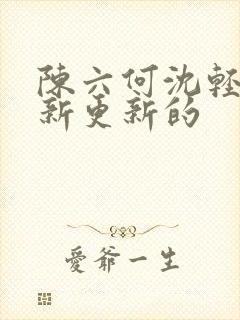 陳六何沈輕
新更新的
愛爺一生